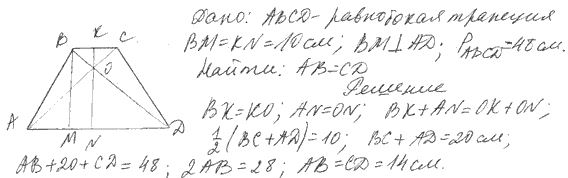 Дано: ABCD - равнобокая трапеция
BM=KN=10см; BM⊥AD; P_ABCD=48см.
Найти: AB=CD
Решение
BK=KO; AN=ON; BK+AN=OK+ON;
1/2(BC+AD)=10; BC+AD=20см;
AB+20+CD=48; 2AB=28; AB=CD=14см.
K
B
C
O
A
M
N
D